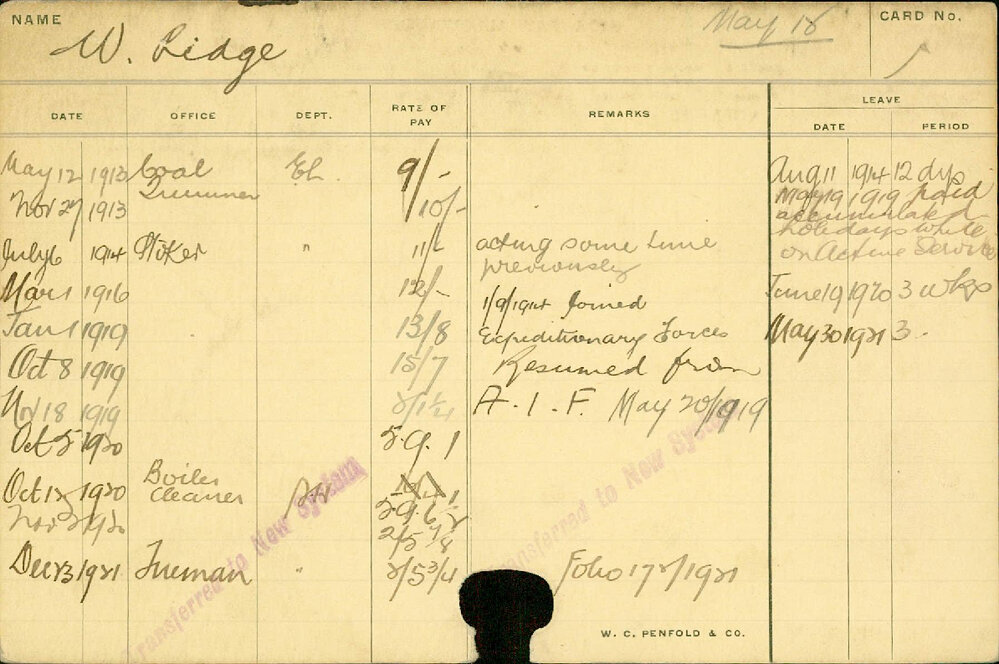 NAME
W. Lidge
May 18
CARD No.
DATE OFFICE DEPT. RATE OF PAY REMARKS LEAVE
DATE PERIOD
May 12 1913 Coal Trimmer Eh. 9/- Aug 11 1914 12 dys
Nov 27 1913 10/- May 19 1919 paid
accumulated
holidays while
on Active Service
July 6 1914 Stoker " 11/- acting some time
previously
Mar 1 1916 12/- 1/9/1914 Joined June 19 1920 3 wks
Jan 1 1919 13/8 Expeditionary Forces May 30 1921 3
Oct 8 1919 15/7 Resumed from
Nov 18 1919 2/1¼ A.I.F. May 20/1919
Oct 5 1920 5.9.1
Oct 12 1920 Boiler
cleaner
1920 5.9.6½
2/5⅞
Dec 23 1921 Fireman " 2/5¾ Folio 172/1921
Transferred to New System
Transferred to New System
W. C. PENFOLD & CO.